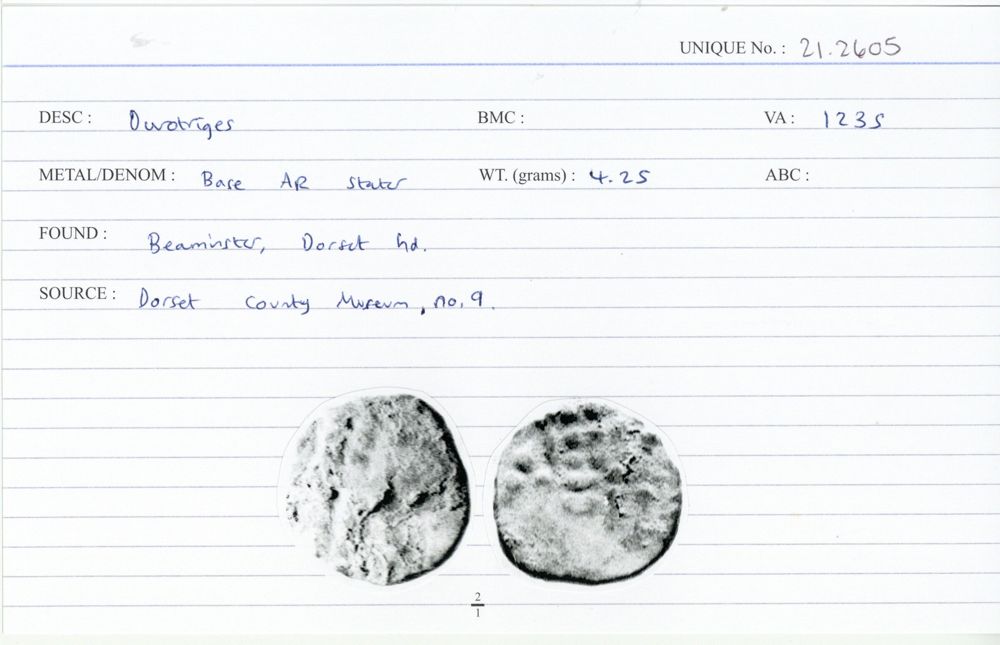 UNIQUE No. : 21.2605
DESC : Durotriges BMC : VA : 1235
METAL/DENOM : Base AR stater WT. (grams) : 4.25 ABC :
FOUND : Beaminster, Dorset hd.
SOURCE : Dorset County Museum, no. 9.
2
1